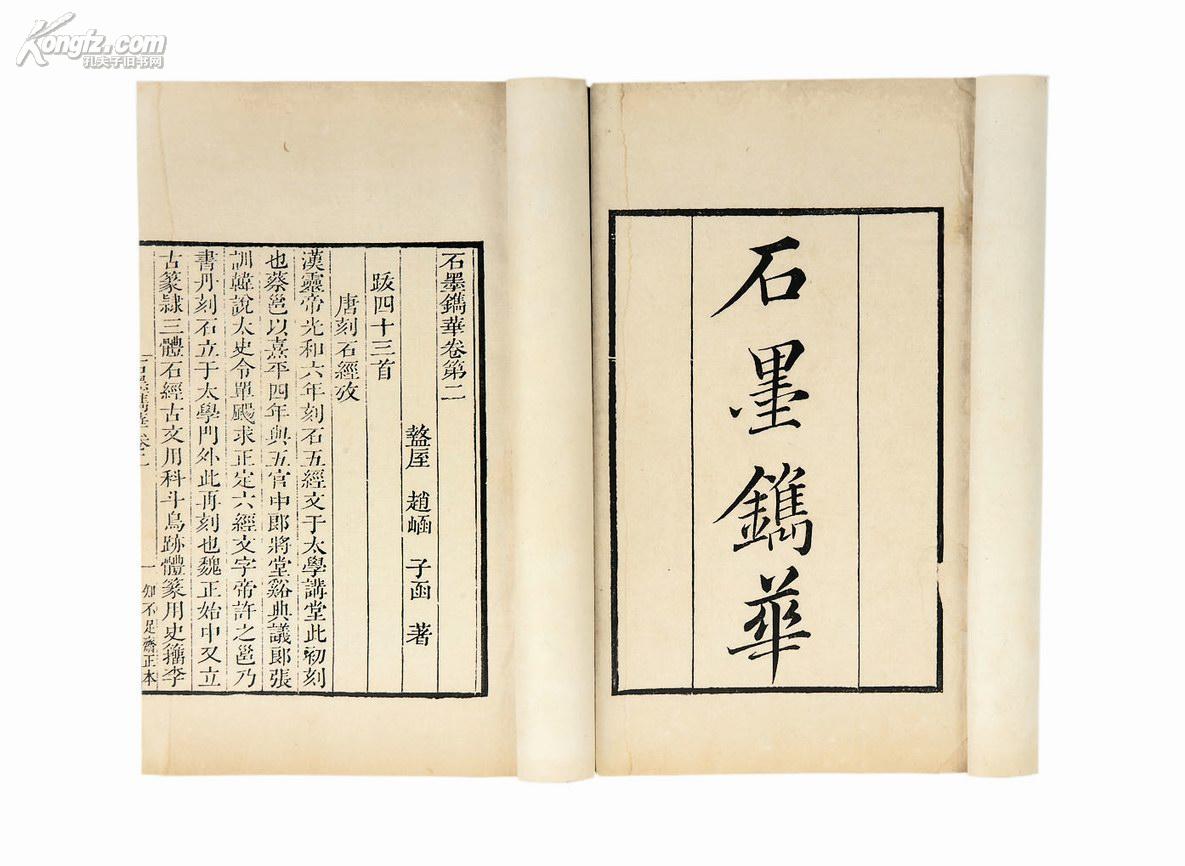 Kongfz.com
孔夫子旧书网
石墨鐫華
石墨鐫華卷第二
盩厔 趙崡 子函 著
跋四十三首
唐刻石經攷
漢靈帝光和六年刻石五經文于太學講堂此初刻
也蔡邕以熹平四年與五官中郎將堂谿典議郎張
訓韓說太史令單颺求正定六經文字帝許之邕乃
書丹刻石立于太學門外此再刻也魏正始中又立
古篆隸三體石經古文用科斗鳥跡體篆用史籀李
石墨鐫華卷二
一 知不足齋正本